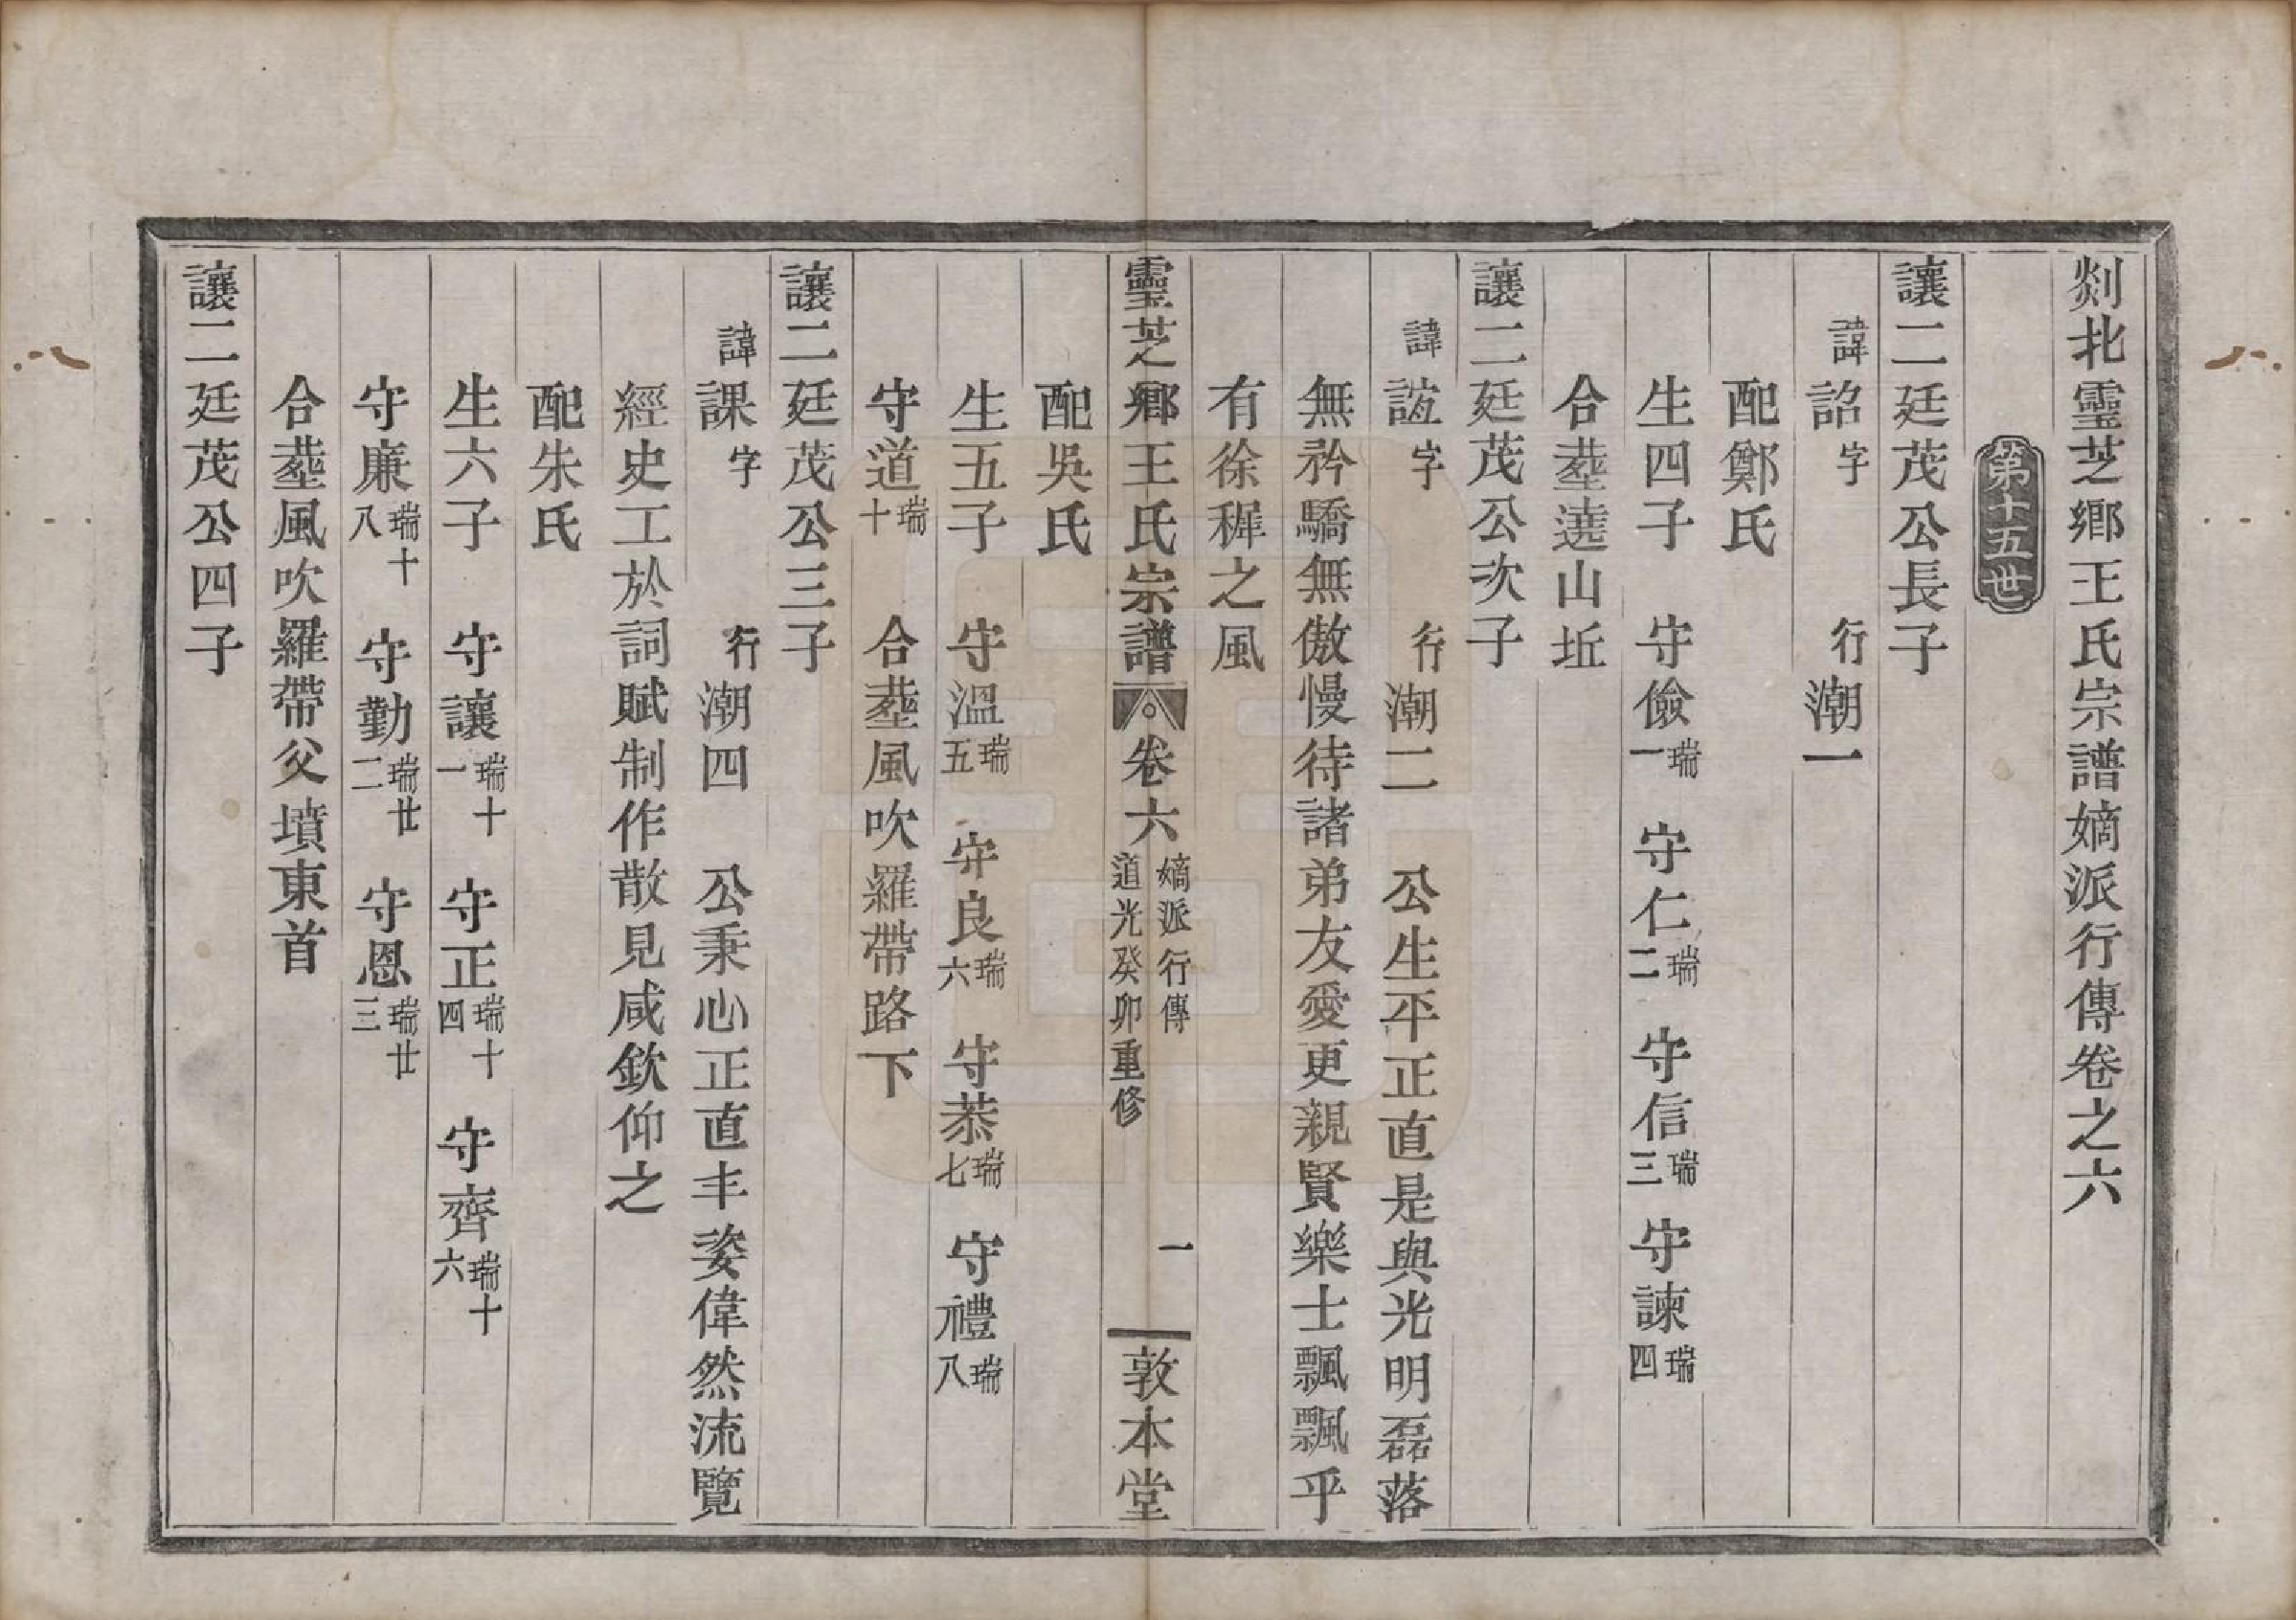 剡北靈芝鄉王氏宗譜嫡派行傳卷之六
第十五世
讓二廷茂公長子
諱詔字　行潮一
配鄭氏
生四子　守儉瑞一　守仁瑞二　守信瑞三　守諫瑞四
合塟遶山坵
讓二廷茂公次子
諱誼字　行潮二　公生平正直是與光明磊落
無矜驕無傲慢待諸弟友愛更親賢樂士飄飄乎
有徐穉之風
靈芝鄉王氏宗譜　卷六　嫡派行傳　道光癸卯重修　一　敦本堂
配吳氏
生五子　守溫瑞五　守良瑞六　守恭瑞七　守禮瑞八
守道瑞十　合塟風吹羅帶路下
讓二廷茂公三子
諱課字　行潮四　公秉心正直丰姿偉然流覽
經史工於詞賦制作散見咸欽仰之
配朱氏
生六子　守讓瑞十一　守正瑞十四　守齊瑞十六
守廉瑞十八　守勤瑞廿二　守恩瑞廿三
合塟風吹羅帶父墳東首
讓二廷茂公四子